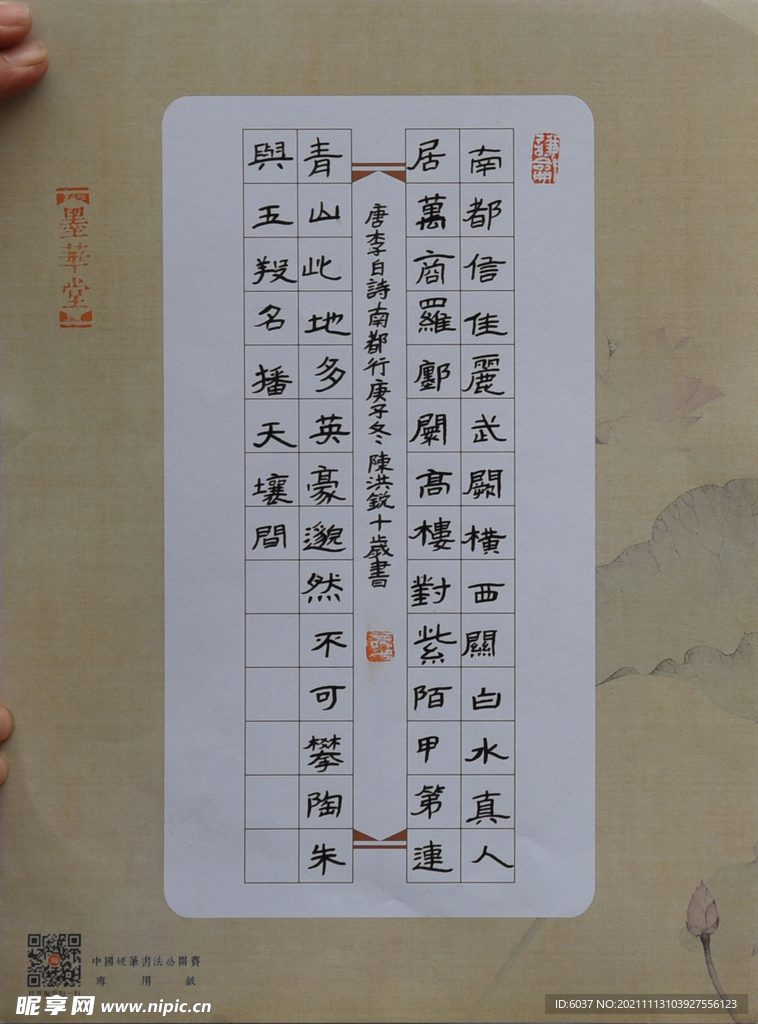 南都信佳麗武闕橫西關白水真人
居萬商羅鄽闤高樓對紫陌甲第連
青山此地多英豪邈然不可攀陶朱
與五羖名播天壤間
唐李白詩南都行庚子冬陳洪銳十歲書
墨華堂
中國硬筆書法公開賽
專用紙
昵享网 www.nipic.cn
ID:6037 NO:20211113103927556123